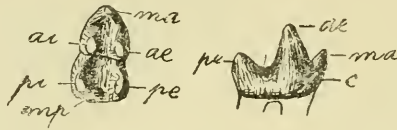 ma
ai
ae
pi
pe
mp
ae
pe
ma
c